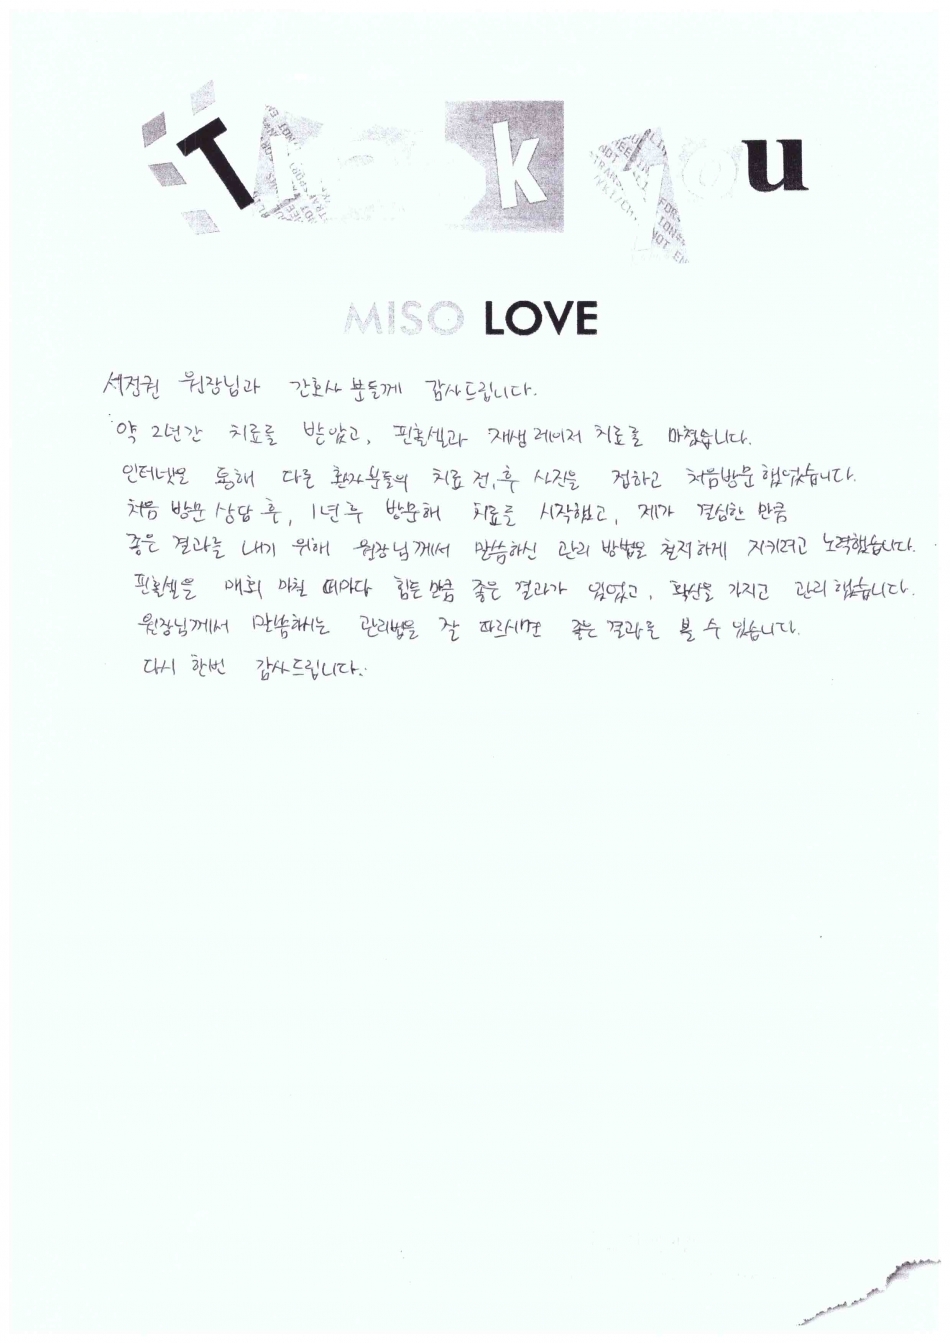 Thank you
MISO LOVE
서정권 원장님과 간호사 분들께 감사드립니다.
약 2년간 치료를 받았고, 핀홀셀과 재생 레이저 치료를 마쳤습니다.
인터넷을 통해 다른 환자분들의 치료 전, 후 사진을 접하고 처음방문 했었습니다.
처음 방문 상담 후, 1년 후 방문해 치료를 시작했고, 제가 결심한 만큼
좋은 결과를 내기 위해 원장님께서 말씀하신 관리 방법을 철저하게 지키려고 노력했습니다.
핀홀셀을 매회 마칠 때마다 힘든 만큼 좋은 결과가 있었고, 확신을 가지고 관리 했습니다.
원장님께서 말씀하시는 관리법을 잘 따르시면 좋은 결과를 볼 수 있습니다.
다시 한번 감사드립니다.